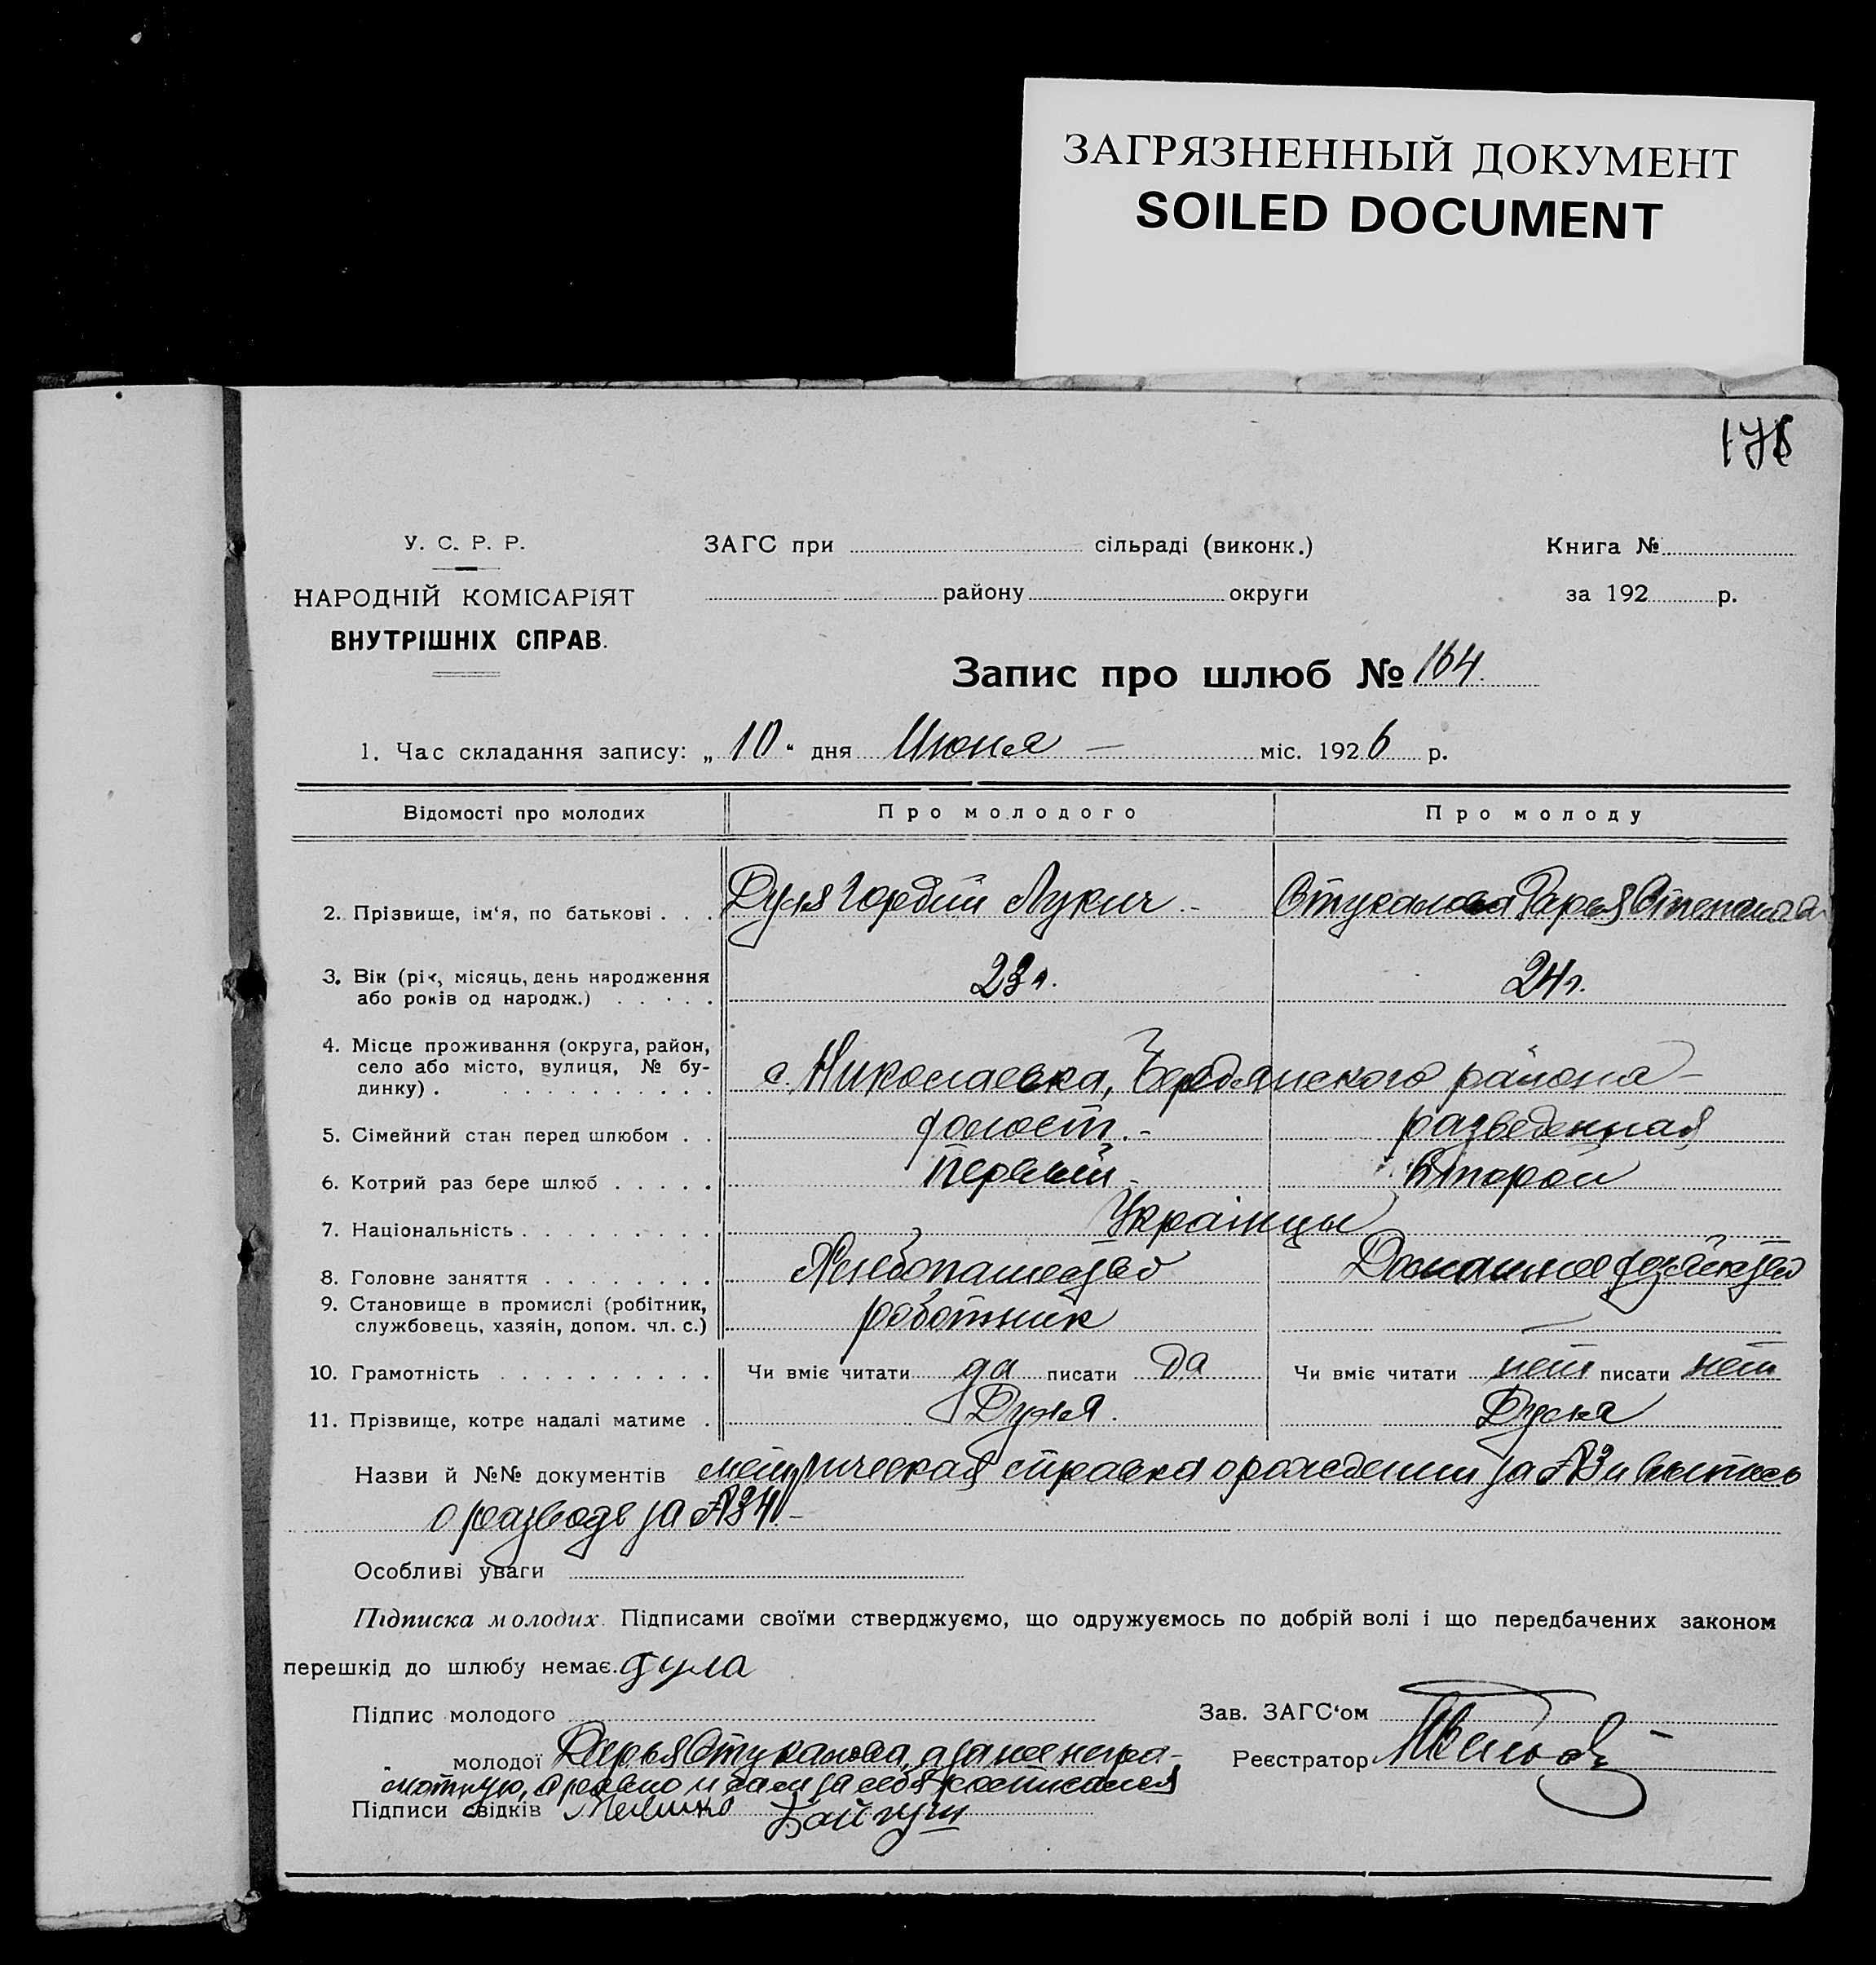 ЗАГРЯЗНЕННЫЙ ДОКУМЕНТ
SOILED DOCUMENT
У. С. Р. Р.
НАРОДНІЙ КОМІСАРІЯТ
ВНУТРІШНІХ СПРАВ.
ЗАГС при сільраді (виконк.)
району округи
Книга №
за 192 р.
Запис про шлюб № 164.
1. Час складання запису: „ 10 “ дня Июня — міс. 1926 р.
Відомості про молодих Про молодого Про молоду
2. Прізвище, ім‘я, по батькові . . . Дуля Гордий Лукич - Стукалова Дарья Степановна
3. Вік (рік, місяць, день народження
або років од народж.) . . . . . 23 л. 24 г.
4. Місце проживання (округа, район,
село або місто, вулиця, № бу-
динку) . . . . . . . . . . . с. Николаевка, Бердянского района -
5. Сімейний стан перед шлюбом . . холост. - разведенная
6. Котрий раз бере шлюб . . . . . Первый - Второй
7. Національність . . . . . . . . . Українцы
8. Головне заняття . . . . . . . . Хлебопашество Домашнее хозяйство
9. Становище в промислі (робітник,
службовець, хазяін, допом. чл. с.) работник —
10. Грамотність . . . . . . . . . . Чи вміє читати да писати да Чи вміє читати нет писати нет
11. Прізвище, котре надалі матиме . Дуля. Дуля
Назви й №№ документів метрическая справка о рождении за №3 и выпись
о разводе за №34. -
Особливі уваги
Підписка молодих. Підписами своїми стверджуємо, що одружуємось по добрій волі і що передбачених законом
перешкід до шлюбу немає. дула
Підпис молодого
Зав. ЗАГС‘ом
молодої Дарья Стукалова, а за нее негра-
мотную, а равно и сам за себя расписался
Реєстратор
Підписи свідків